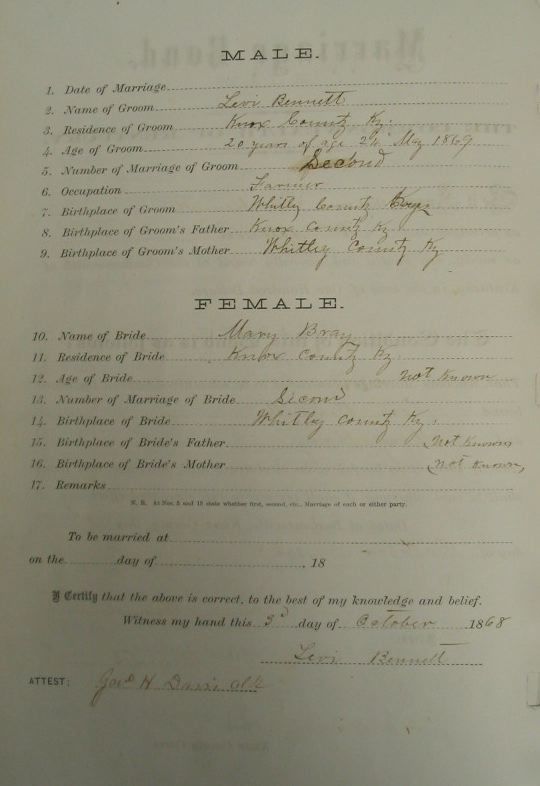 MALE.
1. Date of Marriage
2. Name of Groom Levi Bennett
3. Residence of Groom Knox County Ky.
4. Age of Groom 20 years of age 24 May 1869
5. Number of Marriage of Groom Second
6. Occupation Farmer
7. Birthplace of Groom Whitley County
8. Birthplace of Groom's Father Knox County Ky
9. Birthplace of Groom's Mother Whitley County Ky
FEMALE.
10. Name of Bride Mary Bray
11. Residence of Bride Knox County Ky
12. Age of Bride not known
13. Number of Marriage of Bride Second
14. Birthplace of Bride Whitley County Ky.
15. Birthplace of Bride's Father not known
16. Birthplace of Bride's Mother not known
17. Remarks
N. B. At Nos. 5 and 13 state whether first, second, etc., Marriage of each or either party.
To be married at
on the day of , 18
I Certify that the above is correct, to the best of my knowledge and belief.
Witness my hand this 3d day of October 1868
Levi Bennett
ATTEST: H Davis clk